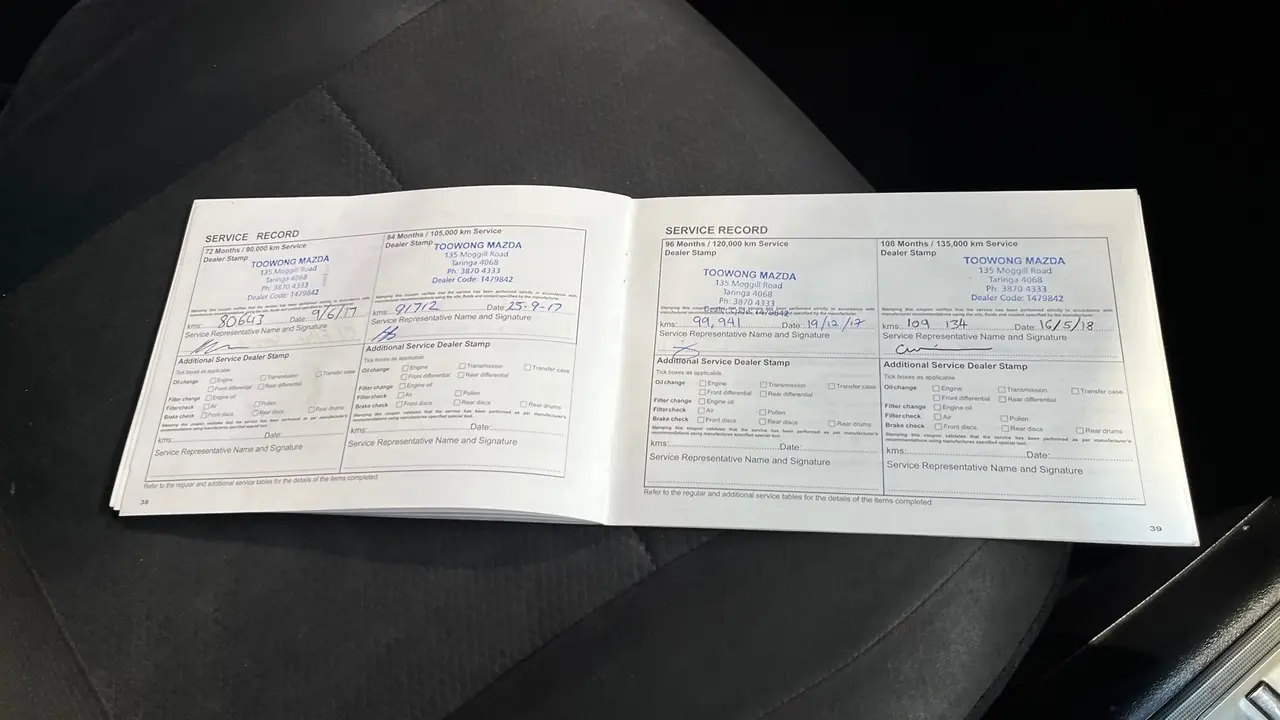 SERVICE RECORD
72 Months / 90,000 km Service
Dealer Stamp
TOOWONG MAZDA
135 Moggill Road
Taringa 4068
Ph: 3870 4333
Dealer Code: 1479842
Stamping this coupon verifies that the service has been performed strictly in accordance with
kms: 80643 Date: 9/6/17
Service Representative Name and Signature
Additional Service Dealer Stamp
Tick boxes as applicable
Oil change Engine Transmission Transfer case
Front differential Rear differential
Filter change Engine oil
Filter check Air Pollen
Brake check Front discs Rear discs Rear drums
Stamping this coupon validates that the service has been performed as per manufacturer's
recommendations using manufactures specified special tool.
kms: Date:
Service Representative Name and Signature
84 Months / 105,000 km Service
Dealer Stamp
TOOWONG MAZDA
135 Moggill Road
Taringa 4068
Ph: 3870 4333
Dealer Code: 1479842
Stamping this coupon verifies that the service has been performed strictly in accordance with
manufacturer recommendations using the oils, fluids and coolant specified by the manufacturer.
kms: 91712 Date: 25-9-17
Service Representative Name and Signature
Additional Service Dealer Stamp
Tick boxes as applicable
Oil change Engine Transmission Transfer case
Front differential Rear differential
Filter change Engine oil
Filter check Air Pollen
Brake check Front discs Rear discs Rear drums
Stamping this coupon validates that the service has been performed as per manufacturer's
recommendations using manufactures specified special tool.
kms: Date:
Service Representative Name and Signature
Refer to the regular and additional service tables for the details of the items completed
38
SERVICE RECORD
96 Months / 120,000 km Service
Dealer Stamp
TOOWONG MAZDA
135 Moggill Road
Taringa 4068
Ph: 3870 4333
Stamping this coupon verifies that the service has been performed strictly in accordance with
kms: 99,941 Date: 19/12/17
Service Representative Name and Signature
Additional Service Dealer Stamp
Tick boxes as applicable
Oil change Engine Transmission Transfer case
Front differential Rear differential
Filter change Engine oil
Filter check Air Pollen
Brake check Front discs Rear discs Rear drums
Stamping this coupon validates that the service has been performed as per manufacturer's
recommendations using manufactures specified special tool.
kms: Date:
Service Representative Name and Signature
108 Months / 135,000 km Service
Dealer Stamp
TOOWONG MAZDA
135 Moggill Road
Taringa 4068
Ph: 3870 4333
Dealer Code: 1479842
Stamping this coupon verifies that the service has been performed strictly in accordance with
manufacturer recommendations using the oils, fluids and coolant specified by the manufacturer.
kms: 109 134 Date: 16/5/18
Service Representative Name and Signature
Additional Service Dealer Stamp
Tick boxes as applicable
Oil change Engine Transmission Transfer case
Front differential Rear differential
Filter change Engine oil
Filter check Air Pollen
Brake check Front discs Rear discs Rear drums
Stamping this coupon validates that the service has been performed as per manufacturer's
recommendations using manufactures specified special tool.
kms: Date:
Service Representative Name and Signature
Refer to the regular and additional service tables for the details of the items completed
39